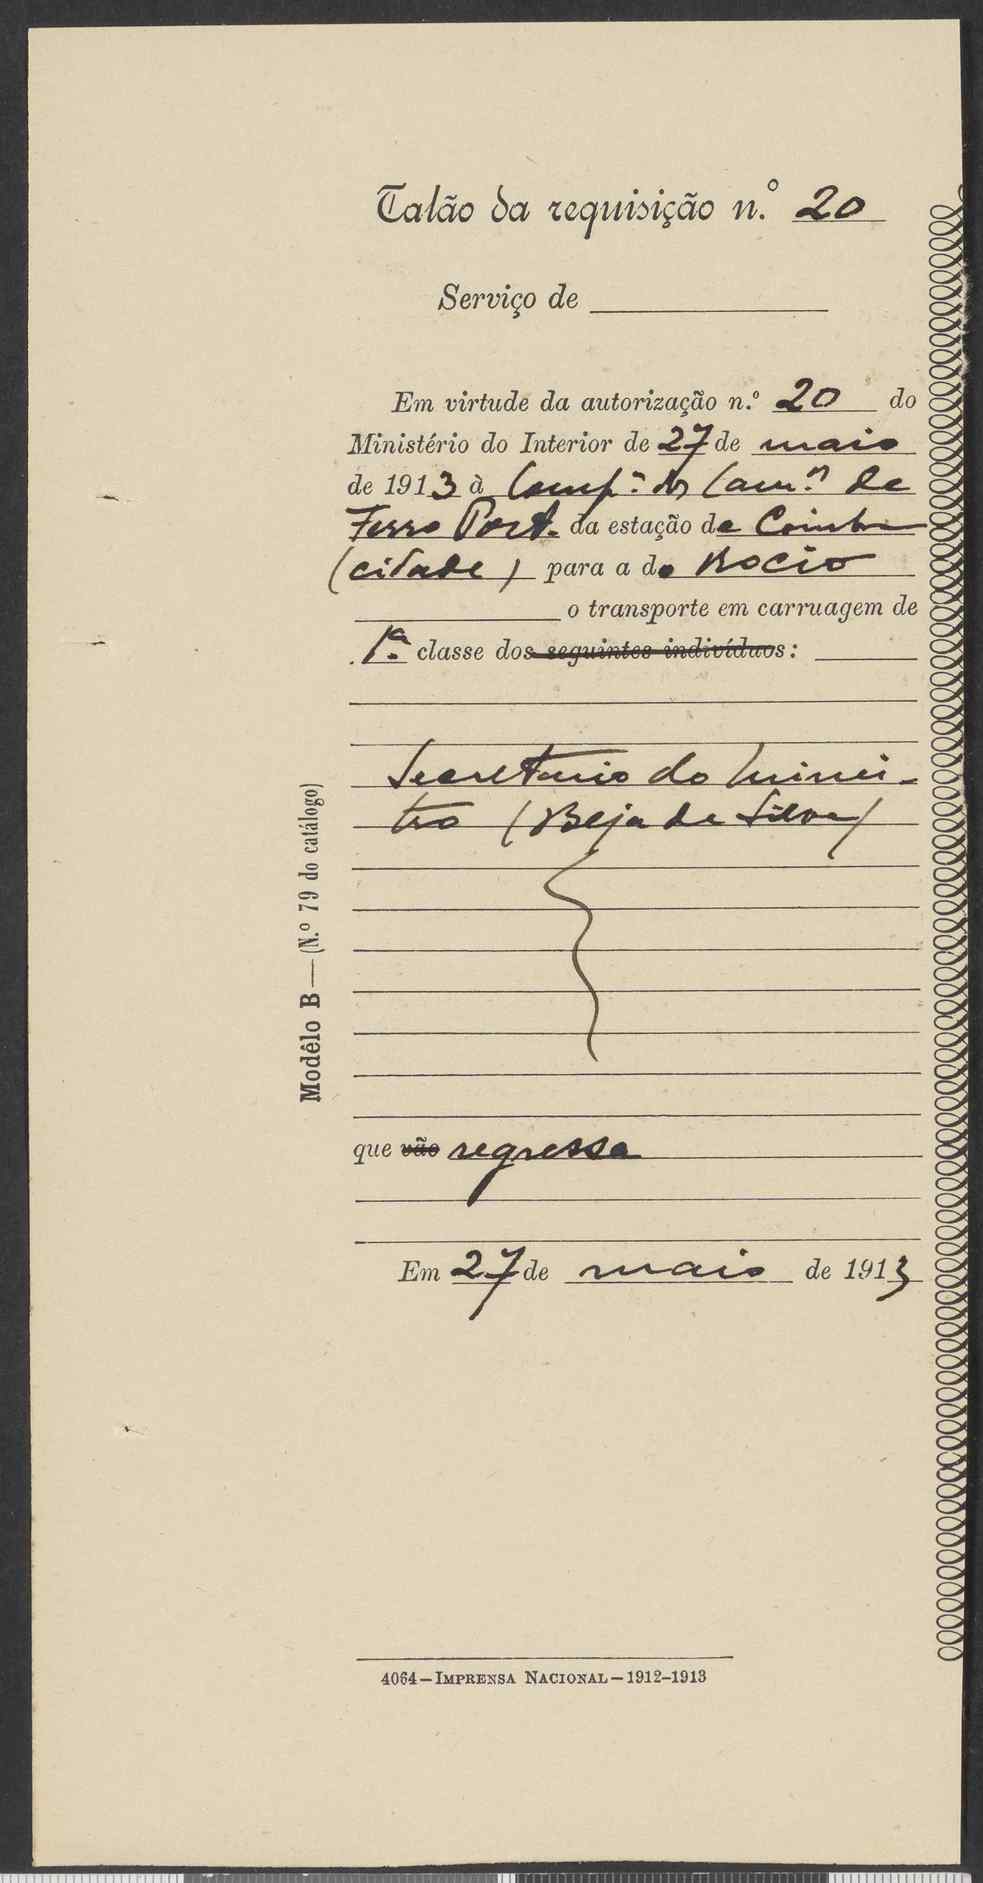 Talão da requisição n.º 20
Serviço de
Em virtude da autorização n.º 20 do
Ministério do Interior de 27 de maio
de 1913 à Comp.ª dos Cam.os de
Ferro Port. da estação de Coimbra
(cidade) para a do Rocio
o transporte em carruagem de
1.ª classe dos seguintes indivíduos:
Secretario do Minis-
tro (Beja da Silva)
que vão regressa
Em 27 de maio de 1913
Modêlo B — (N.º 79 do catálogo)
4064 — IMPRENSA NACIONAL — 1912-1913